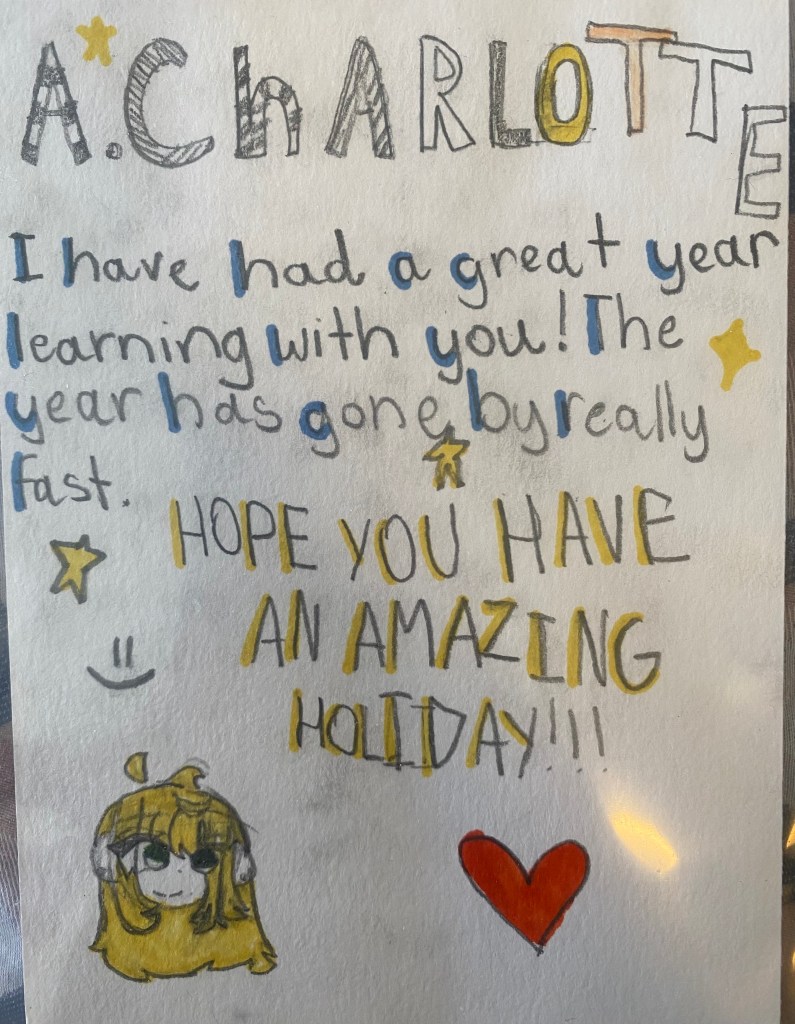 A.ChARLOTTE
I have had a great year
learning with you! The
year has gone by really
fast.
HOPE YOU HAVE
AN AMAZING
HOLIDAY!!!